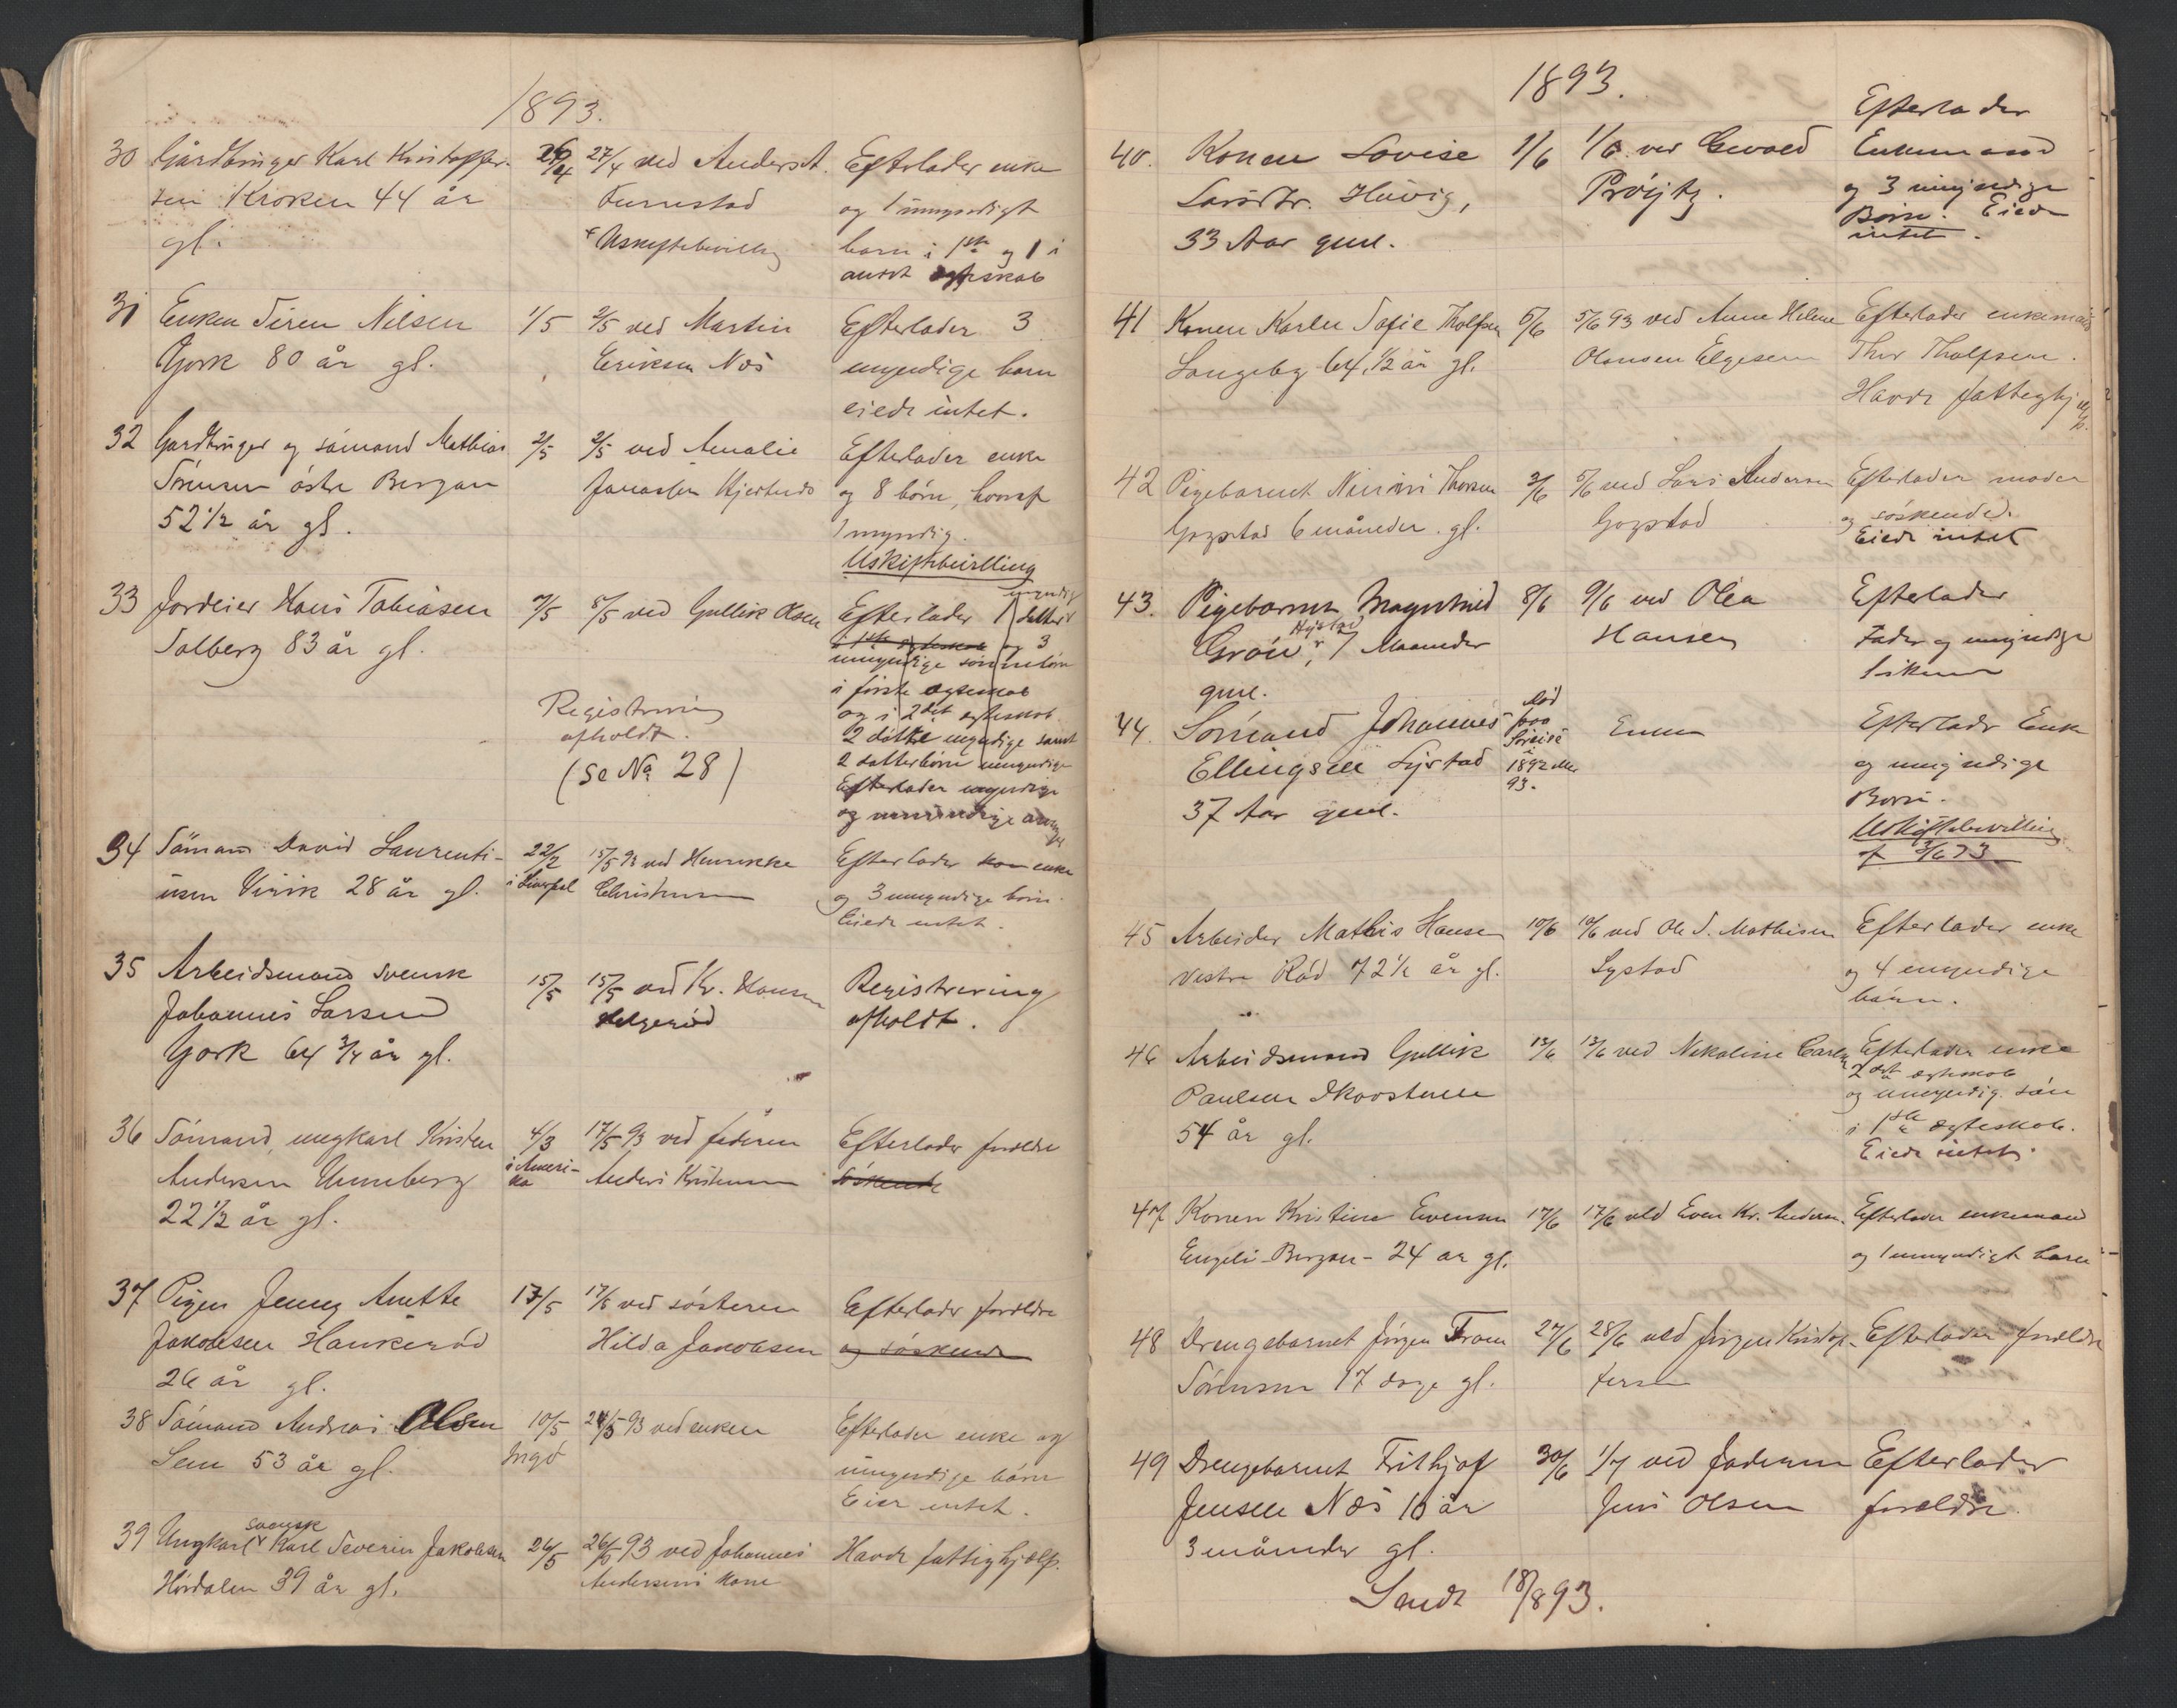 1893.
30 Gårdbruger Karl Kristoffer-
sen Kroken 44 år
gl.
26/4
27/4 ved Anders A.
Furustad
Uskiftebevilling
Efterlader enke
og 1 umyndigt
barn i 1ste og 1 i
andet ægteskab
31 Enken Siren Nilsen
Gjork 80 år gl.
1/5
2/5 ved Martin
Eriksen Næs
Efterlader 3
myndige barn
eiede intet.
32 Gardbruger og sømand Mathias
Sørensen østre Bergan
52 1/2 år gl.
2/5
2/5 ved Amalie
Efterlader enke
og 8 børn, hvoraf
1 myndig.
Uskiftebevilling
33 Jordeier Hans Tobiasen
Solberg 83 år gl.
7/5
8/5 ved Gullik Olsen
Registrering
afholdt.
(se No 28)
Efterlader 1 datter
myndig
i 1ste ægteskab og 3
umyndige sønnebørn
i første ægteskab
og i 2det ægteskab
2 døttre myndige samt
2 datterbørn umyndige
Efterlader myndige
og umyndige
34 Sømand David Laurenti-
usen Virik 28 år gl.
22/2
i Liverpol
15/5 93 ved Henrikke
Christensen
Efterlader enke
og 3 umyndige børn.
Eiede intet.
35 Arbeidsmand svensk
Johannes Larsen
Gjork 64 3/4 år gl.
15/5
15/5 ved Kr. Hansen
Helgerød
Registrering
afholdt.
36 Sømand, ungkarl Kristen
Andersen Unneberg
22 1/2 år gl.
4/3
i Ameri-
ka
17/5 93 ved faderen
Anders Kristensen
Efterlader forældre
søskende
37 Pigen Jenny Anette
Jakobsen Haukerød
26 år gl.
17/5
17/5 ved søsteren
Hilda Jakobsen
Efterlader forældre
og søskende
38 Sømand Andreas Olsen
Sem 53 år gl.
10/5
24/5 93 ved enken
Efterlader enke og
umyndige børn
Eier intet.
39 Ungkarl svensk Karl Severin Jakobsen
Hørdalen 39 år gl.
26/5
26/5 93 ved Johannes
Andersens kone
Havde fattighjælp.
1893.
40. Konen Lovise
Larsdtr. Huvig,
33 Aar gml.
1/6
1/6 ved Gevald
Prøytz.
Efterlader
Enkemand
og 3 umyndige
Børn. Eiede
intet.
41 Konen Karen Sofie Tholfsen
Langeby 64 1/2 år gl.
5/6
5/6 93 ved Anne Helene
Olausen Elgesem
Efterlader enkemand
Thor Tholfsen.
Havde fattighjælp.
42 Pigebarnet Thorsen
Gogstad 6 måneder gl.
3/6
5/6 ved Lars Andersen
Gogstad
Efterlader moder
og søskende.
Eiede intet
43. Pigebarnet Magnhild
Grøn, 7 Maaneder
gml.
8/6
9/6 ved Olea
Hansen
Efterlader
Fader og umyndige
Søskend
44. Sømand Johannes
Ellingsen Lystad
37 Aar gml.
Død
paa
Søreise
i
1892 eller
93.
Enken
Efterlader Enke
og umyndige
Børn.
Uskiftebevilling
af 3/6 93
45 Arbeider Mathis Hansen
Vestre Rød 72 1/2 år gl.
10/6
10/6 ved Ole J. Mathisen
Lystad
Efterlader enke
og 4 myndige
børn.
46 Arbeidsmand Gullik
Paulsen Skovstuen
54 år gl.
13/6
13/6 ved Nikoline Carlsen
Efterlader enke
2det ægteskab
og umyndig søn
i 1ste ægteskab.
Eiede intet.
47 Konen Kristine Evensen
Engeli-Bergan- 24 år gl.
17/6
17/6 ved Even Kr. Andersen.
Efterlader enkemand
og 1 umyndigt barn
48 Drengebarnet Jørgen Fram
Sørensen 17 dage gl.
27/6
28/6 ved Jørgen Kristof-
fersen
Efterlader forældre
49 Drengebarnet Frithjof
Jensen Næs 10 år
3 måneder gl.
30/6
1/7 ved faderen
Jens Olsen
Efterlader
forældre.
Sendt 18/8 93.